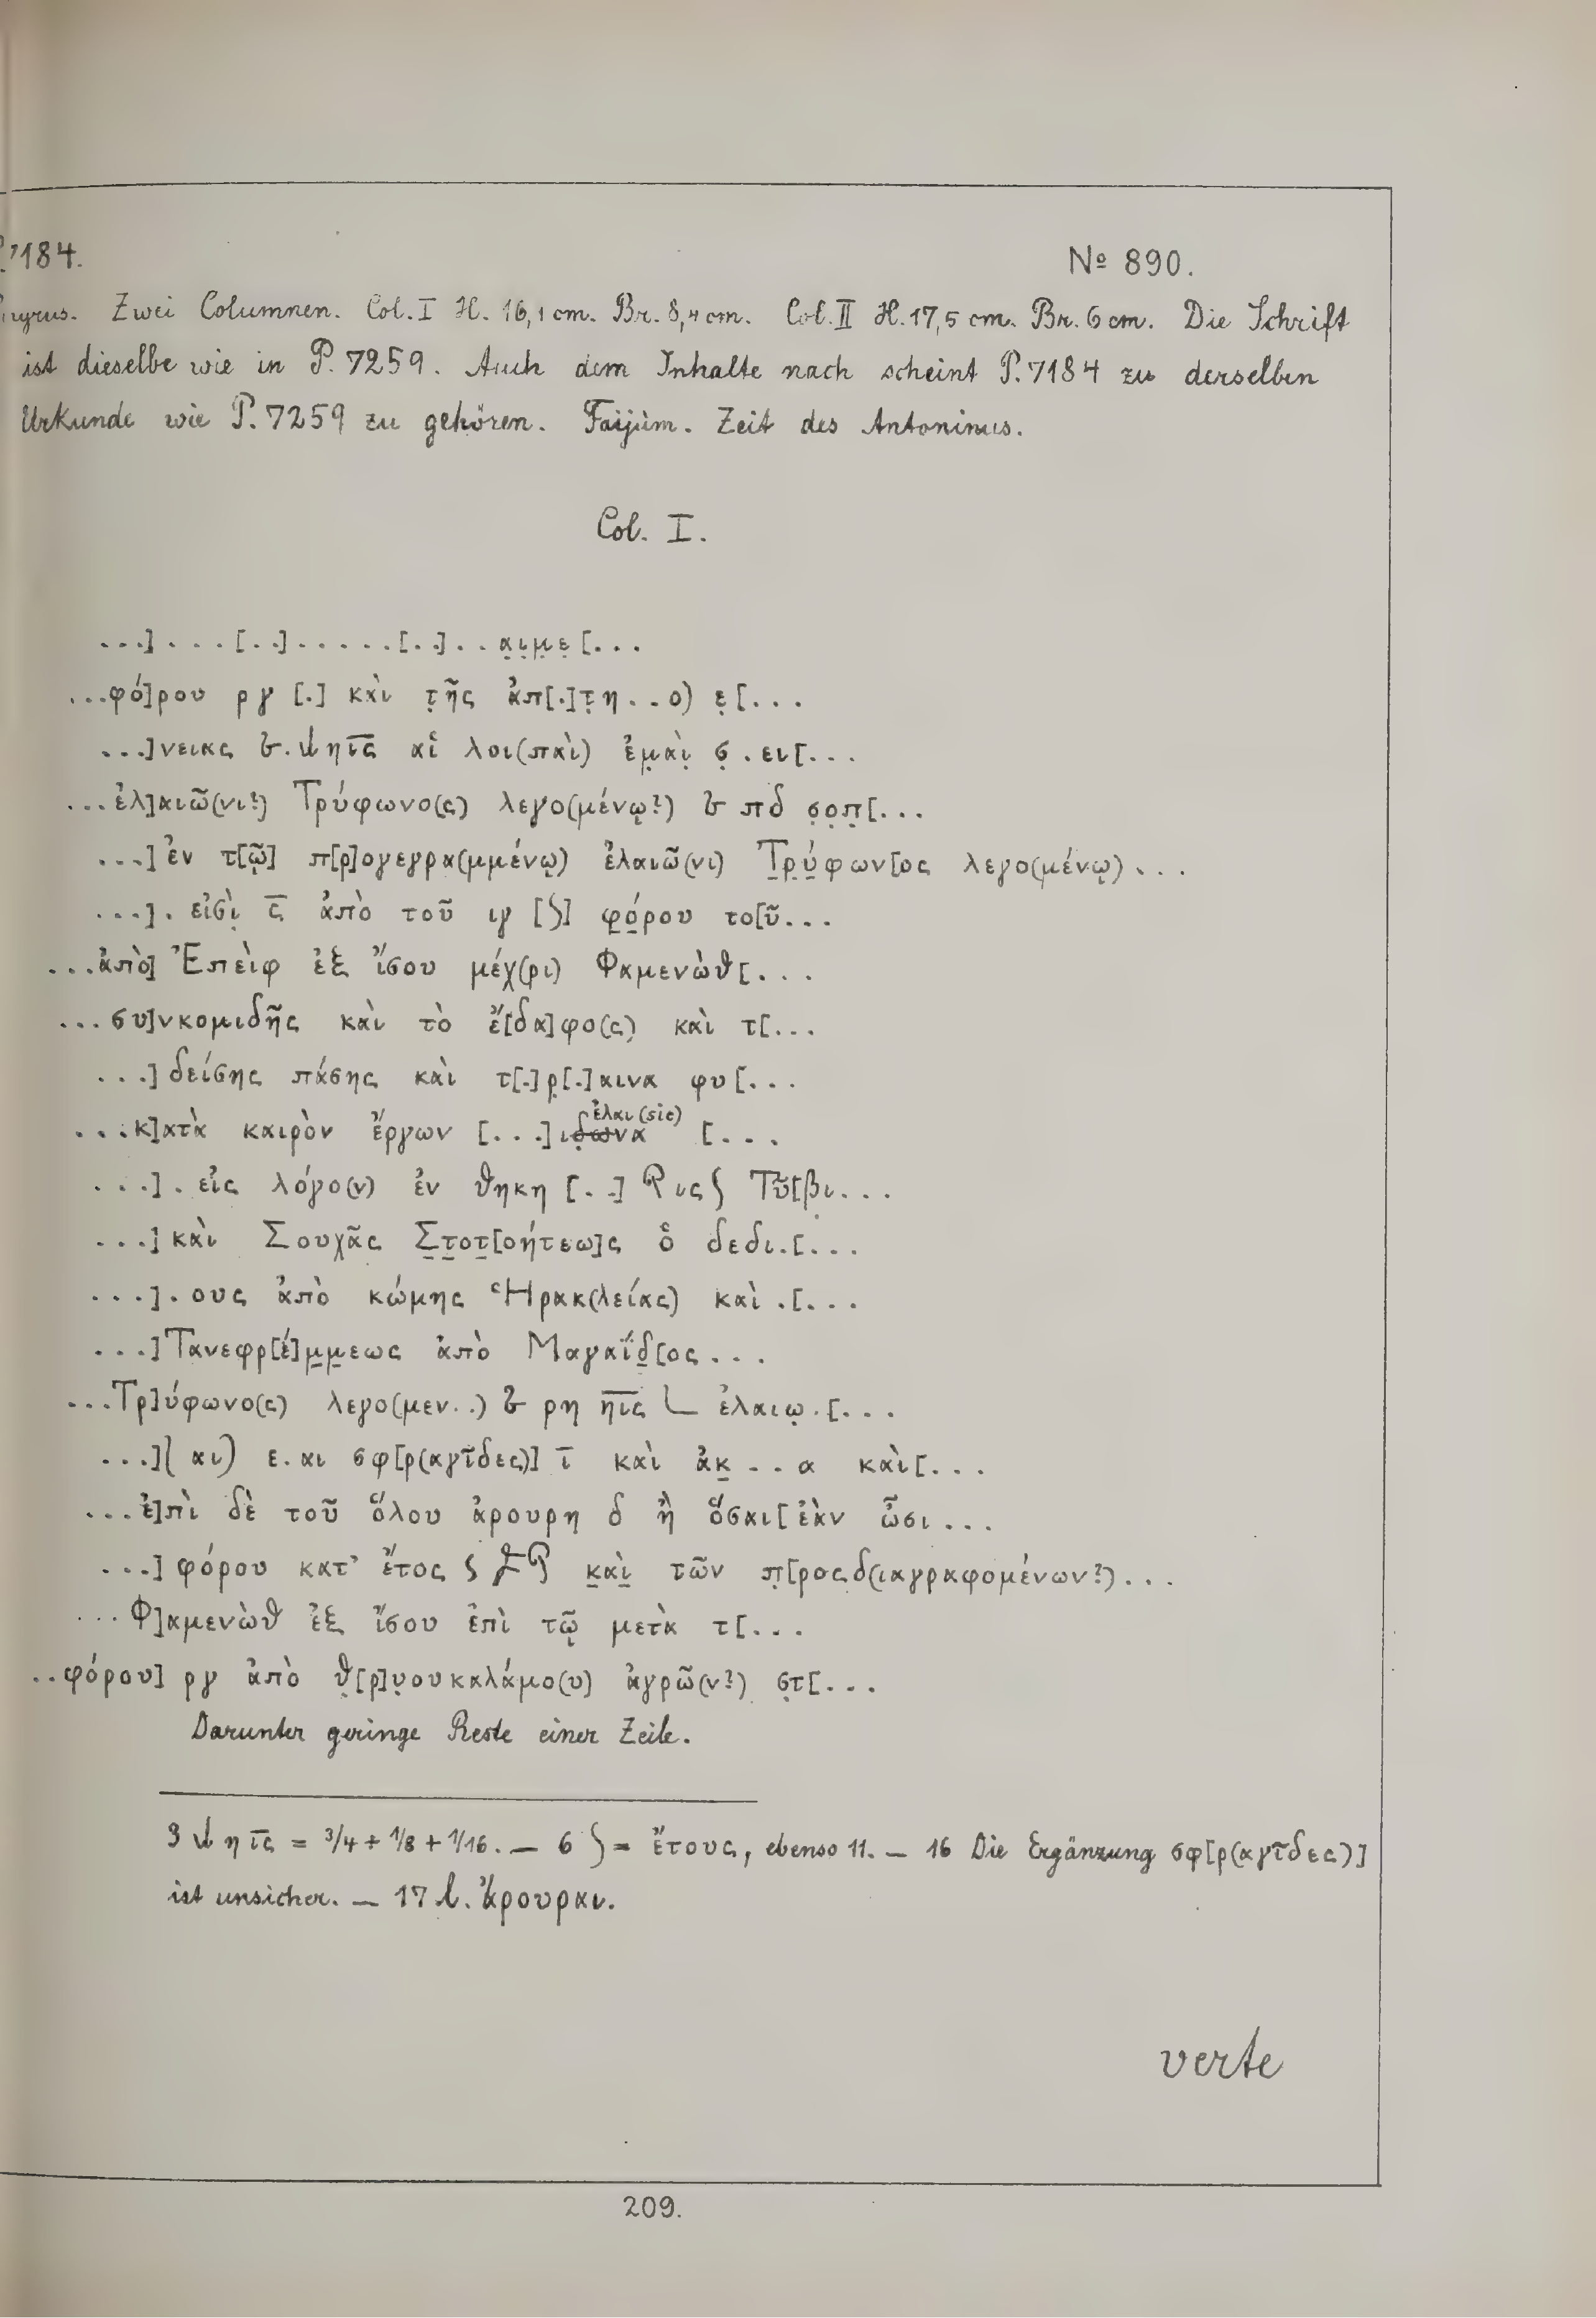 P.7184. № 890.
Papyrus. Zwei Columnen. Col. I H. 16,1 cm. Br. 8,4 cm. Col. II H. 17,5 cm. Br. 6 cm. Die Schrift
ist dieselbe wie in P. 7259. Auch dem Inhalte nach scheint P. 7184 zu derselben
Urkunde wie P. 7259 zu gehören. Faijûm. Zeit des Antoninus.
Col. I.
...]....[..].....[..]..α̣ι̣μ̣ε̣[...
...φό]ρου ργ [.] καὶ τ̣ῆς ἀπ[.]τ̣η...ο) ε̣[...
...]νεικς . η ι̅ς̅ αἱ λοι(παὶ) ἐμ̣αὶ̣ σ̣.ει[...
...ἐλ]αιῶ(νι?) Τρύφωνο(ς) λεγο(μένῳ?) πδ σ̣ο̣π̣[...
...] ἐν τ[ῷ] π[ρ]ογεγρα(μμένῳ) ἐλαιῶ(νι) Τ̣ρ̣ύ̣φων[ος λεγο(μένῳ)...
...]. εἰσὶ̣ ς̅ ἀπὸ τοῦ ιγ [ʃ] φ̣ό̣ρου το[ῦ...
...ἀπὸ] Ἐπεὶφ ἐξ ἴσου μέχ(ρι) Φαμενὼθ[...
...συ]νκομιδῆς καὶ τὸ ἔ[δα]φο(ς) καὶ τ[...
...] δείσης πάσης καὶ τ[.]ρ̣[.]αινα φυ[...
...κ]ατὰ καιρὸν ἔργων [...]ιδωνα ἐλαι (sic) [...
...]. εἰς λόγο(ν) ἐν θηκη [..] ις ʃ Τῦ[βι...
...] καὶ Σουχᾶς Σ̣τ̣οτ̣[οήτεω]ς ὁ δεδι.[...
...]. ους ἀπὸ κώμης Ἡρακ(λείας) καὶ .[...
...] Τανεφρ[έ]μ̣μ̣εως ἀπὸ Μαγαΐδ̣[ος...
...Τρ]ύφωνο(ς) λεγο(μεν..) ρη η̅ι̅ς̅ ἐλαιῳ.[...
...](αι) ε.αι σφ[ρ(αγῖδες)] ι̅ καὶ ἀκ̣...α καὶ[...
...ἐ]πὶ δὲ τοῦ ὅλου ἀρουρη δ ἢ ὅσαι[ἐὰν ὦσι...
...] φόρου κατ’ ἔτος κ̣αὶ̣ τῶν π̣[ροςδ(ιαγραφομένων?)...
...Φ]αμενὼθ ἐξ ἴσου ἐπὶ τῷ μετὰ τ[...
..φόρου] ργ ἀπὸ θ̣[ρ]υ̣ουκαλάμο(υ) ἀγρῶ(ν?) σ̣τ[...
Darunter geringe Reste einer Zeile.
3 η ι̅ς̅ = 3/4 + 1/8 + 1/16. — 6 ʃ = ἔτους, ebenso 11. — 16 Die Ergänzung σφ[ρ(αγῖδες)]
ist unsicher. — 17 l. ἄρουραι.
verte
209.